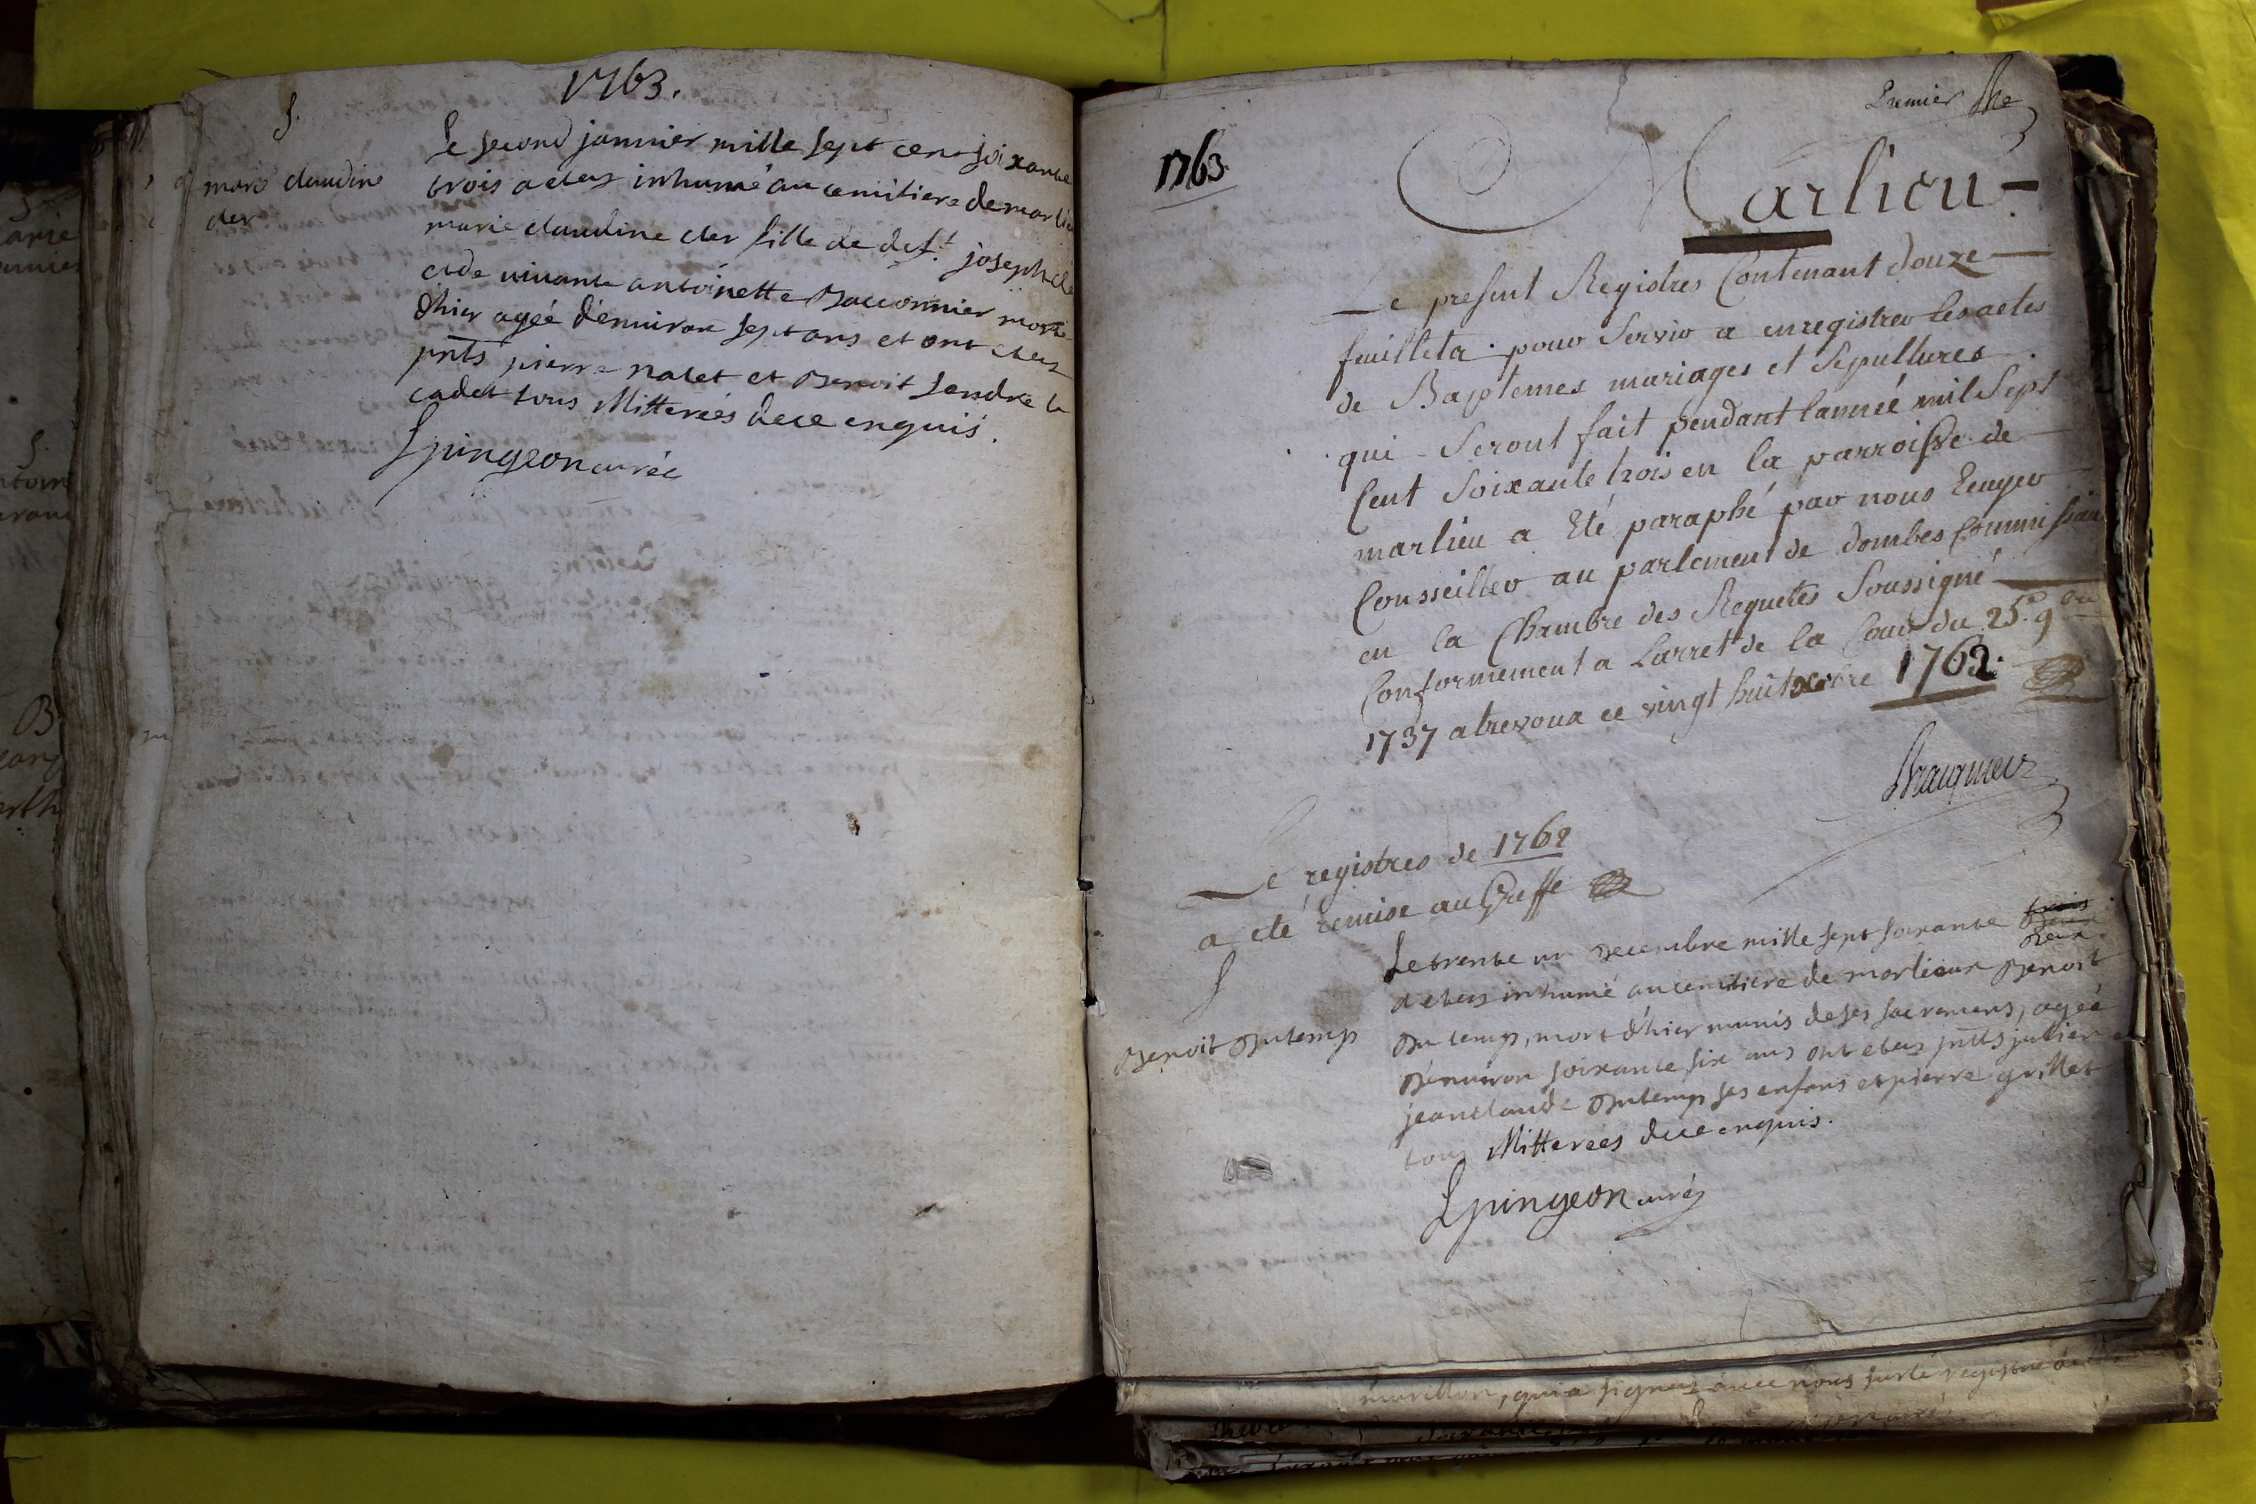 1763.
S.
marie claudine
cler
Le second janvier mille sept cent soixante
trois a etez inhumé au cemitiere de marlieu
marie claudine cler fille de deft. joseph cle
et de vivante antoinette Bacconnier morte
d'hier agéé d'environ sept ans et ont etez
pnts pierre nalet et Benoit Sendre le
cadet tous illitterées de ce enquis.
Epingeon curée
Premier
1763.
Marlieu
Le present Registres Contenant douze
feuilleta pour Servir a enregistrer les actes
de Baptemes mariages et Sepultures
qui Seront fait pendant lanneé mil Sept
Cent Soixante trois en la parroisse de
marlieu a Eté paraphé par nous Ecuyer
Consseiller au parlement de dombes Commissaire
en la Chambre des Requetes Soussigné
Conformement a Larret de la Cour du 25e. 9
1737 a trevoux ce vingt huit xbre 1762.
Le registres de 1762
a eté remise au Greffe
S
Benoit Dutemp
Le trente un Decembre mille sept soixante trois
Deux
a etez inhumé au cemitiere de marlieux Benoit
Du temp, mort d'hier munis de ses sacremens, agéé
D'environ soixante six ans ont etez pnts julien e
jean claude Dutemp ses enfans et pierre grillet
tous illitterées de ce enquis.
Epingeon curéz
morillon, qui a signez avec nous sur le registre